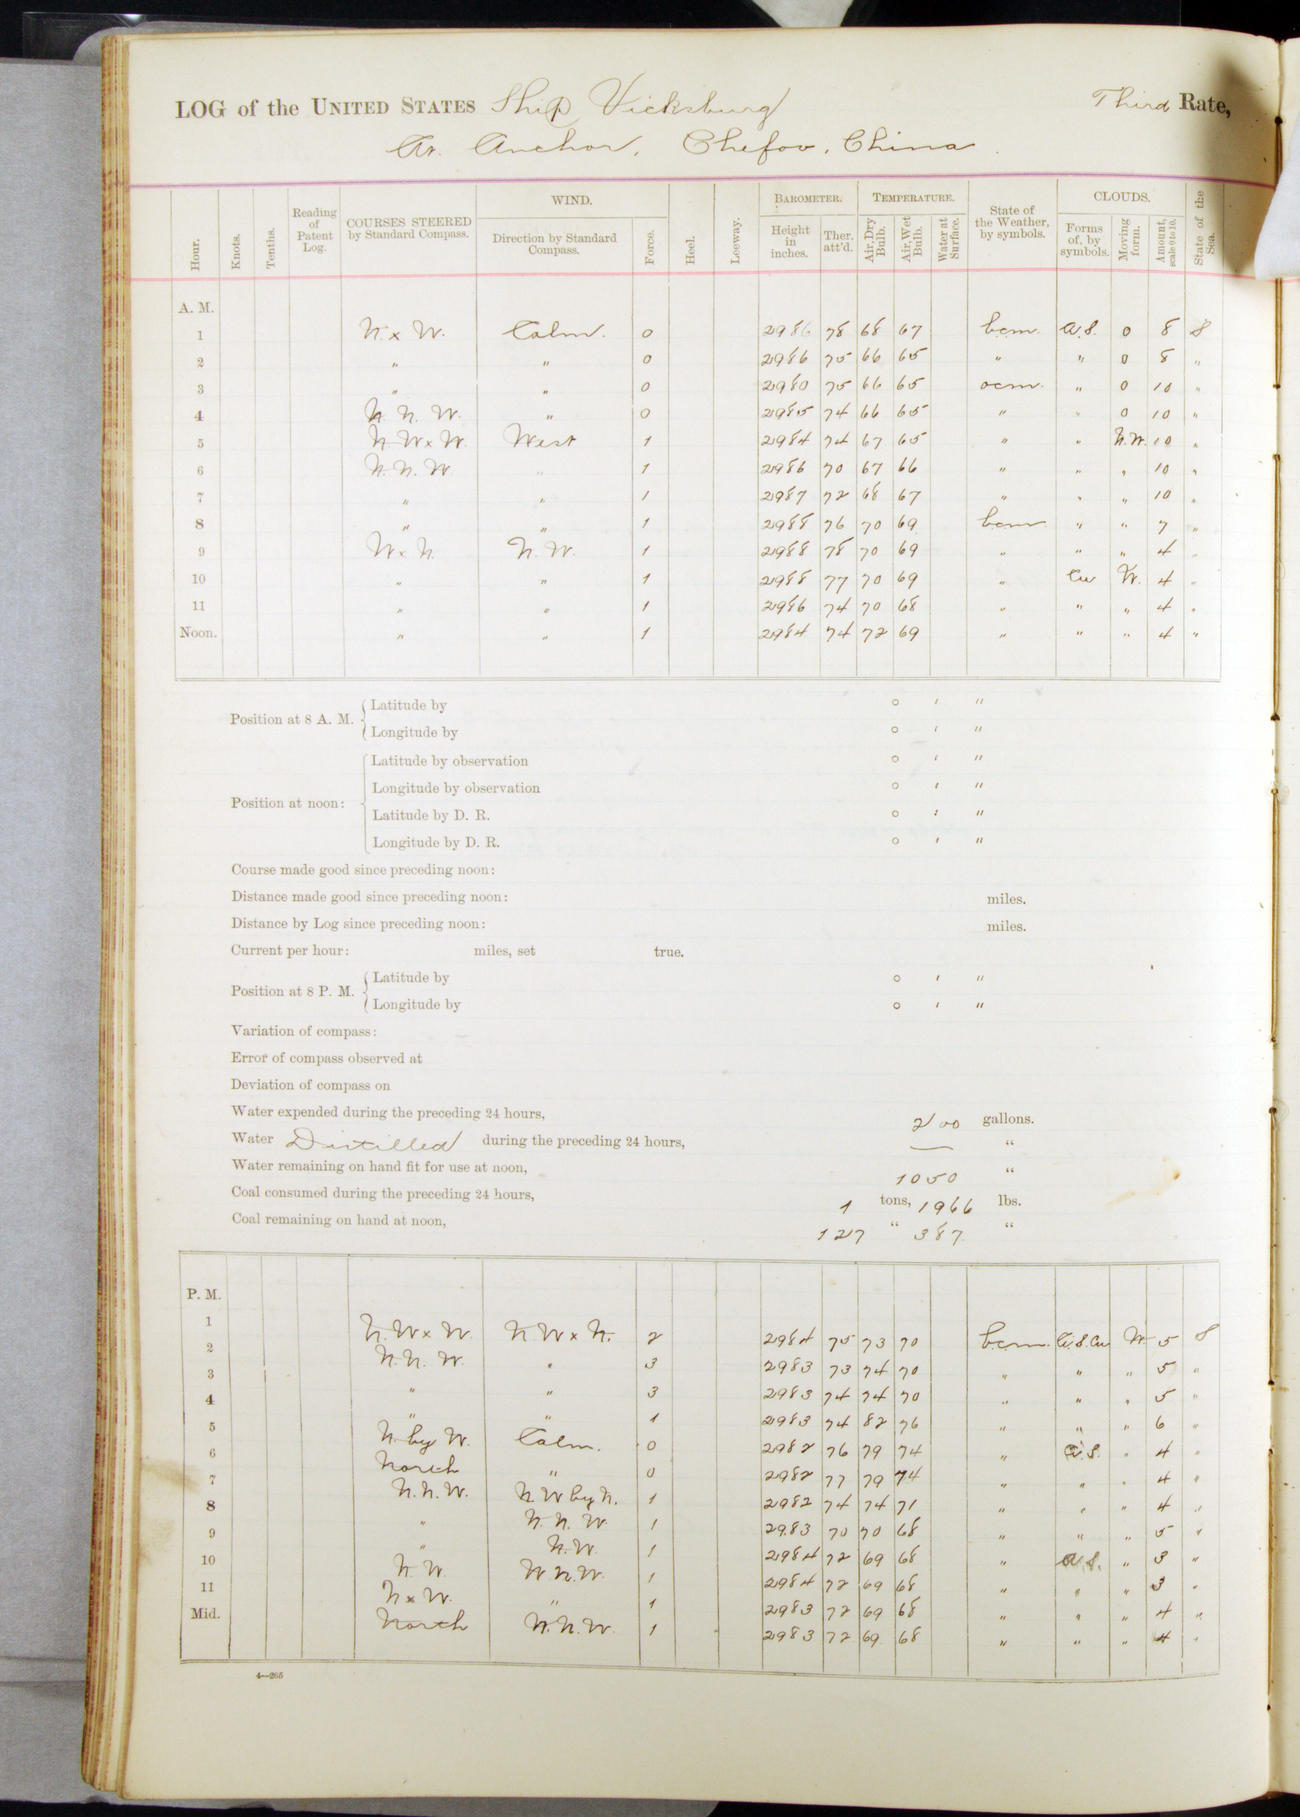 LOG of the UNITED STATES Ship Vicksburg Third Rate,
At Anchor, Chefoo, China.
Hour. Knots. Tenths. Reading of Patent Log. COURSES STEERED by Standard Compass. WIND. Direction by Standard Compass. Force. Heel. Leeway. BAROMETER. Height in inches. Ther. att'd. TEMPERATURE. Air, Dry Bulb. Air, Wet Bulb. Water at Surface. State of the Weather, by symbols. CLOUDS. Forms of, by symbols. Moving form. Amount, scale 0 to 10. State of the Sea.
A. M.
1 N. x W. Calm. 0 2986 78 68 67 bcm. a.s. 0 8 S
2 " " 0 2986 75 66 65 " " 0 8 "
3 " " 0 2980 75 66 65 ocm. " 0 10 "
4 N. N. W. " 0 2985 74 66 65 " " 0 10 "
5 N W x W. West 1 2984 74 67 65 " " N.W. 10 "
6 N. N. W. " 1 2986 70 67 66 " " " 10 "
7 " " 1 2987 72 68 67 " " " 10 "
8 " " 1 2988 76 70 69 bcm " " 7 "
9 W x N. N. W. 1 2988 78 70 69 " " " 4 "
10 " " 1 2988 77 70 69 " Cu W. 4 "
11 " " 1 2986 74 70 68 " " " 4 "
Noon. " " 1 2984 74 72 69 " " " 4 "
Position at 8 A. M. Latitude by ° ' "
Longitude by ° ' "
Position at noon: Latitude by observation ° ' "
Longitude by observation ° ' "
Latitude by D. R. ° ' "
Longitude by D. R. ° ' "
Course made good since preceding noon:
Distance made good since preceding noon: miles.
Distance by Log since preceding noon: miles.
Current per hour: miles, set true.
Position at 8 P. M. Latitude by ° ' "
Longitude by ° ' "
Variation of compass:
Error of compass observed at
Deviation of compass on
Water expended during the preceding 24 hours, 200 gallons.
Water Distilled during the preceding 24 hours, — "
Water remaining on hand fit for use at noon, 1050 "
Coal consumed during the preceding 24 hours, 1 tons, 1966 lbs.
Coal remaining on hand at noon, 127 " 387 "
P. M.
1 N. W x W. N W x N. 2 2984 75 73 70 bcm. Ci.S.Cu W. 5 S
2 N. N. W. " 3 2983 73 74 70 " " " 5 "
3 " " 3 2983 74 74 70 " " " 5 "
4 " " 1 2983 74 82 76 " " " 6 "
5 N. by W. Calm. 0 2982 76 79 74 " " 4 "
6 North " 0 2982 77 79 74 " " " 4 "
7 N. N. W. N. W by N. 1 2982 74 74 71 " " " 4 "
8 " N. N. W. 1 29.83 70 70 68 " " " 5 "
9 " N. W. 1 2984 72 69 68 " a.s. " 3 "
10 N. W. W. N. W. 1 2984 72 69 68 " " " 3 "
11 N x W. " 1 2983 72 69 68 " " " 4 "
Mid. North N. N. W. 1 2983 72 69 68 " " " 4 "
4—265